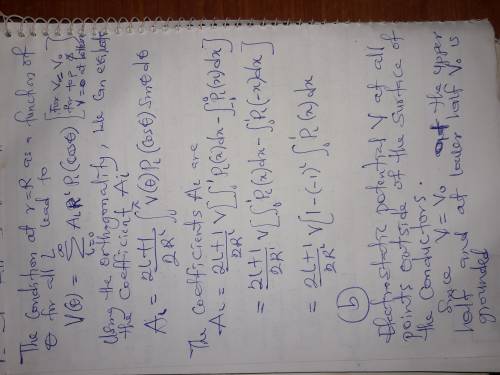 The condition at r=R as a function of
θ for all l lead to
V(θ) = ∑_{l=0}^{∞} A_l R^l P_l (cosθ) [For V = V_0
V = 0 at
Using the orthogonality, we can
the Coefficient A_l
A_l = \frac{2l+1}{2R^l} ∫_0^π V(θ) P_l (cosθ) Sinθ dθ
The coefficients A_l are
A_l = \frac{2l+1}{2R^l} V [∫_0^1 P_l(x)dx - ∫_{-1}^0 P_l(x)dx]
= \frac{2l+1}{2R^l} V [∫_0^1 P_l(x)dx - ∫_0^1 P_l(-x)dx]
= \frac{2l+1}{2R^l} V [1-(-1)^l ∫_0^1 P_l(x)dx
(b)
Electrostatic potential V at all
points outside of the surface of
the conductors.
Since V = V_0 at the upper
half and at lower half V_0 is
grounded